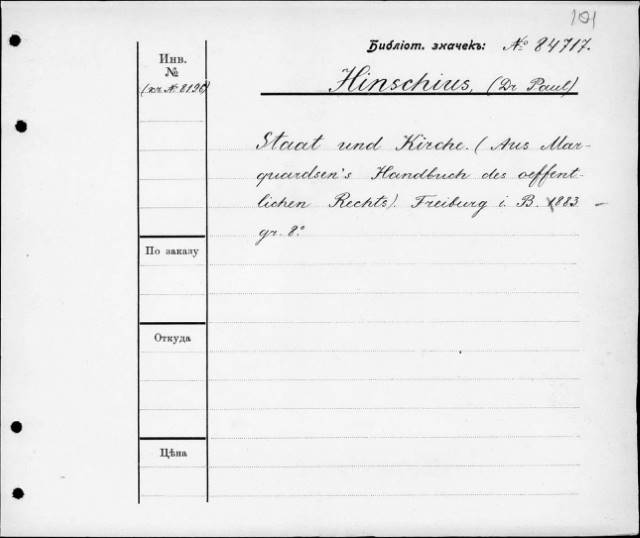 101
Библіот. значекъ: № 84717.
Инв.
№
(кт. № 8196)
Hinschius, (Dr Paul)
Staat und Kirche. (Aus Mar-
quardsen's Handbuch des oeffent-
lichen Rechts). Freiburg i. B. 1883 –
gr. 8°
По заказу
Откуда
Цѣна